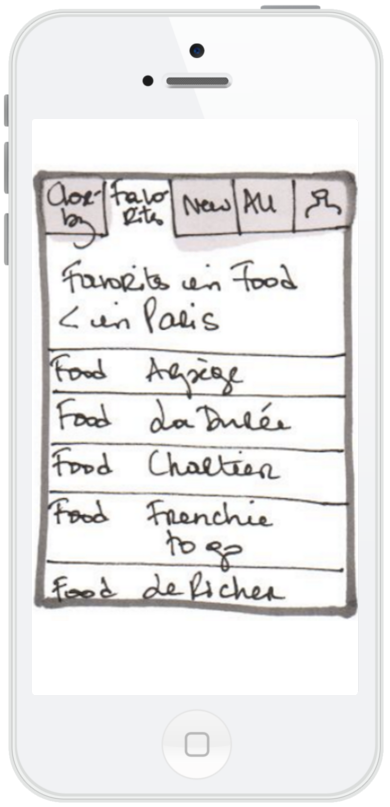 Favo-
rits
New
All
Favorits in Food
< in Paris
Food
Food La Durée
Food Chartier
Food Frenchie
to go
Food Le Richer